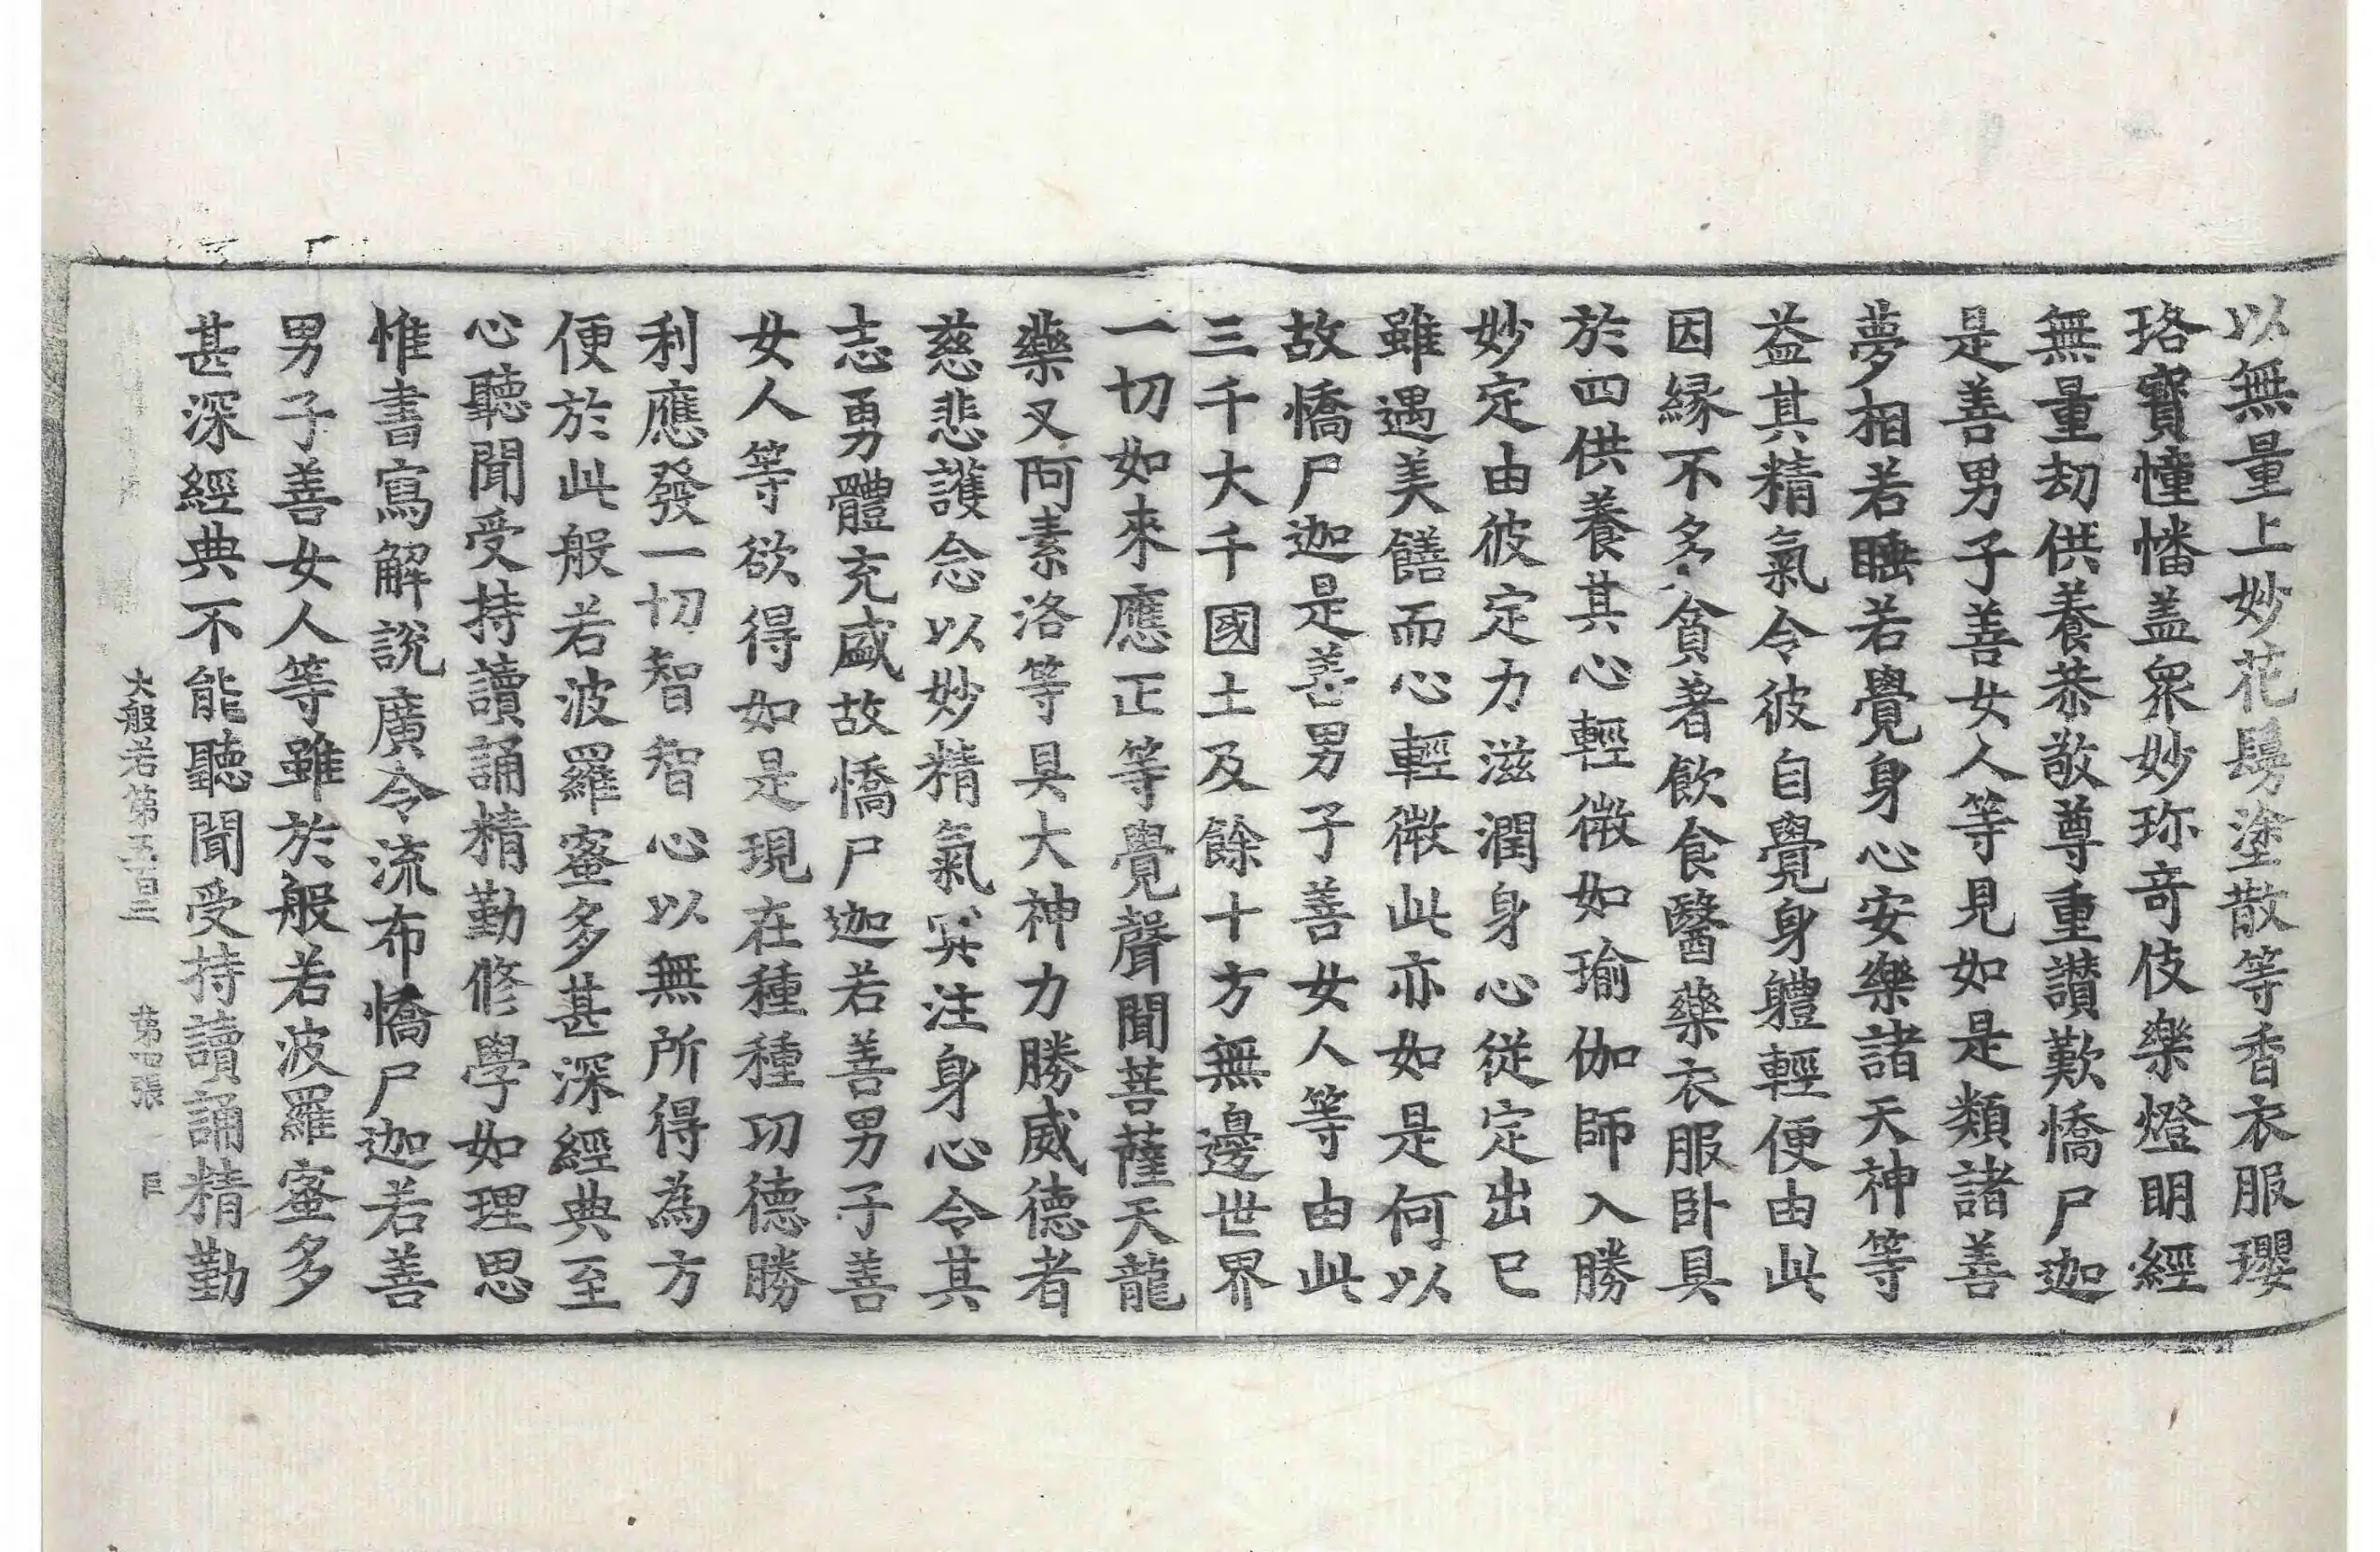 以無量上妙花鬘塗散等香衣服瓔
珞寶幢幡盖衆妙珎竒伎樂燈明經
無量劫供養恭敬尊重讃歎憍尸迦
是善男子善女人等見如是類諸善
夢相若睡若覺身心安樂諸天神等
益其精氣令彼自覺身軆輕便由此
因縁不多貪著飲食醫藥衣服卧具
於四供養其心輕微如瑜伽師入勝
妙定由彼定力滋潤身心從定出已
雖遇美饍而心輕微此亦如是何以
故憍尸迦是善男子善女人等由此
三千大千國土及餘十方無邊世界
一切如來應正等覺聲聞菩薩天龍
藥叉阿素洛等具大神力勝威德者
慈悲護念以妙精氣冥注身心令其
志勇體充盛故憍尸迦若善男子善
女人等欲得如是現在種種功德勝
利應發一切智智心以無所得為方
便於此般若波羅蜜多甚深經典至
心聽聞受持讀誦精勤修學如理思
惟書寫解說廣令流布憍尸迦若善
男子善女人等雖於般若波羅蜜多
甚深經典不能聽聞受持讀誦精勤
大般若第五百三 第四張